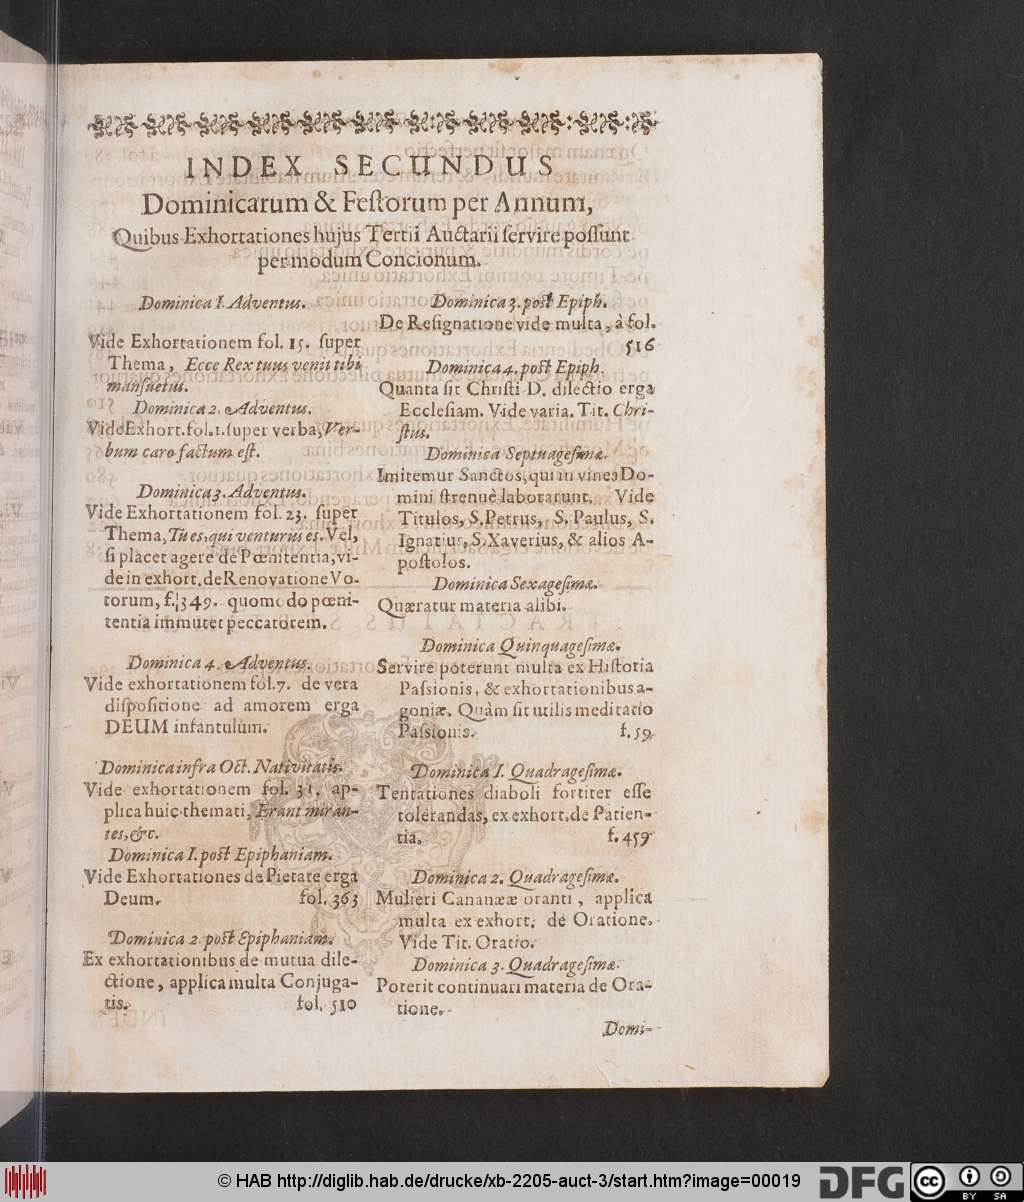 INDEX SECUNDUS
Dominicarum & Feſtorum per Annum,
Quibus Exhortationes hujus Tertii Auctarii ſervire poſſunt
per modum Concionum.
Dominica I. Adventus.
Vide Exhortationem fol. 15. ſuper
Thema, Ecce Rex tuus venit tibi
manſuetus.
Dominica 2. Adventus.
Vide Exhort. fol. 1. ſuper verba, Ver-
bum caro factum eſt.
Dominica 3. Adventus.
Vide Exhortationem fol. 23. ſuper
Thema, Tu es, qui venturus es. Vel,
ſi placet agere de Pœnitentia, vi-
de in exhort. de Renovatione Vo-
torum, f. 349. quomodo pœni-
tentia immutet peccatorem.
Dominica 4. Adventus.
Vide exhortationem fol. 7. de vera
diſpoſitione ad amorem erga
DEUM infantulùm.
Dominica infra Oct. Nativitatis.
Vide exhortationem fol. 31. ap-
plica huic themati, Erant miran-
tes, &c.
Dominica I. poſt Epiphaniam.
Vide Exhortationes de Pietate erga
Deum. fol. 363
Dominica 2. poſt Epiphaniam.
Ex exhortationibus de mutua dile-
ctione, applica multa Conjuga-
tis. fol. 510
Dominica 3. poſt Epiph.
De Reſignatione vide multa, à fol.
516
Dominica 4. poſt Epiph.
Quanta ſit Chriſti D. dilectio erga
Eccleſiam. Vide varia. Tit. Chri-
ſtus.
Dominica Septuageſimæ.
Imitemur Sanctos, qui in vinea Do-
mini ſtrenuè laborarunt. Vide
Titulos, S. Petrus, S. Paulus, S.
Ignatius, S. Xaverius, & alios A-
poſtolos.
Dominica Sexageſimæ.
Quæratur materia alibi.
Dominica Quinquageſimæ.
Servire poterunt multa ex Hiſtoria
Paſsionis, & exhortationibus a-
goniæ. Quàm ſit utilis meditatio
Paſsionis. f. 59.
Dominica I. Quadrageſimæ.
Tentationes diaboli fortiter eſſe
tolerandas, ex exhort. de Patien-
tia. f. 459
Dominica 2. Quadrageſimæ.
Mulieri Cananææ oranti, applica
multa ex exhort. de Oratione.
Vide Tit. Oratio.
Dominica 3. Quadrageſimæ.
Poterit continuari materia de Ora-
tione.
Domi-
© HAB http://diglib.hab.de/drucke/xb-2205-auct-3/start.htm?image=00019
DFG
cc
BY SA